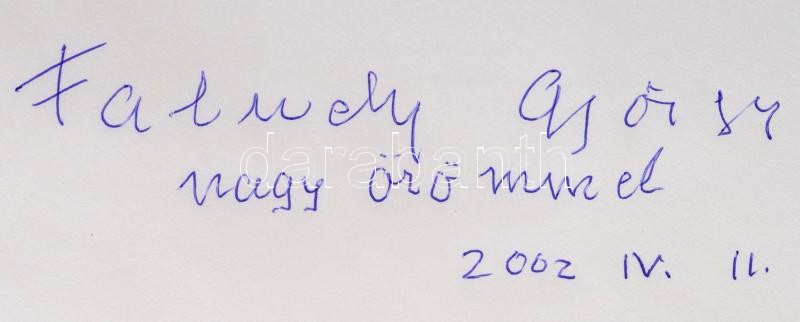 Faludy György
nagy örömmel
darabanth
2002 IV. 11.